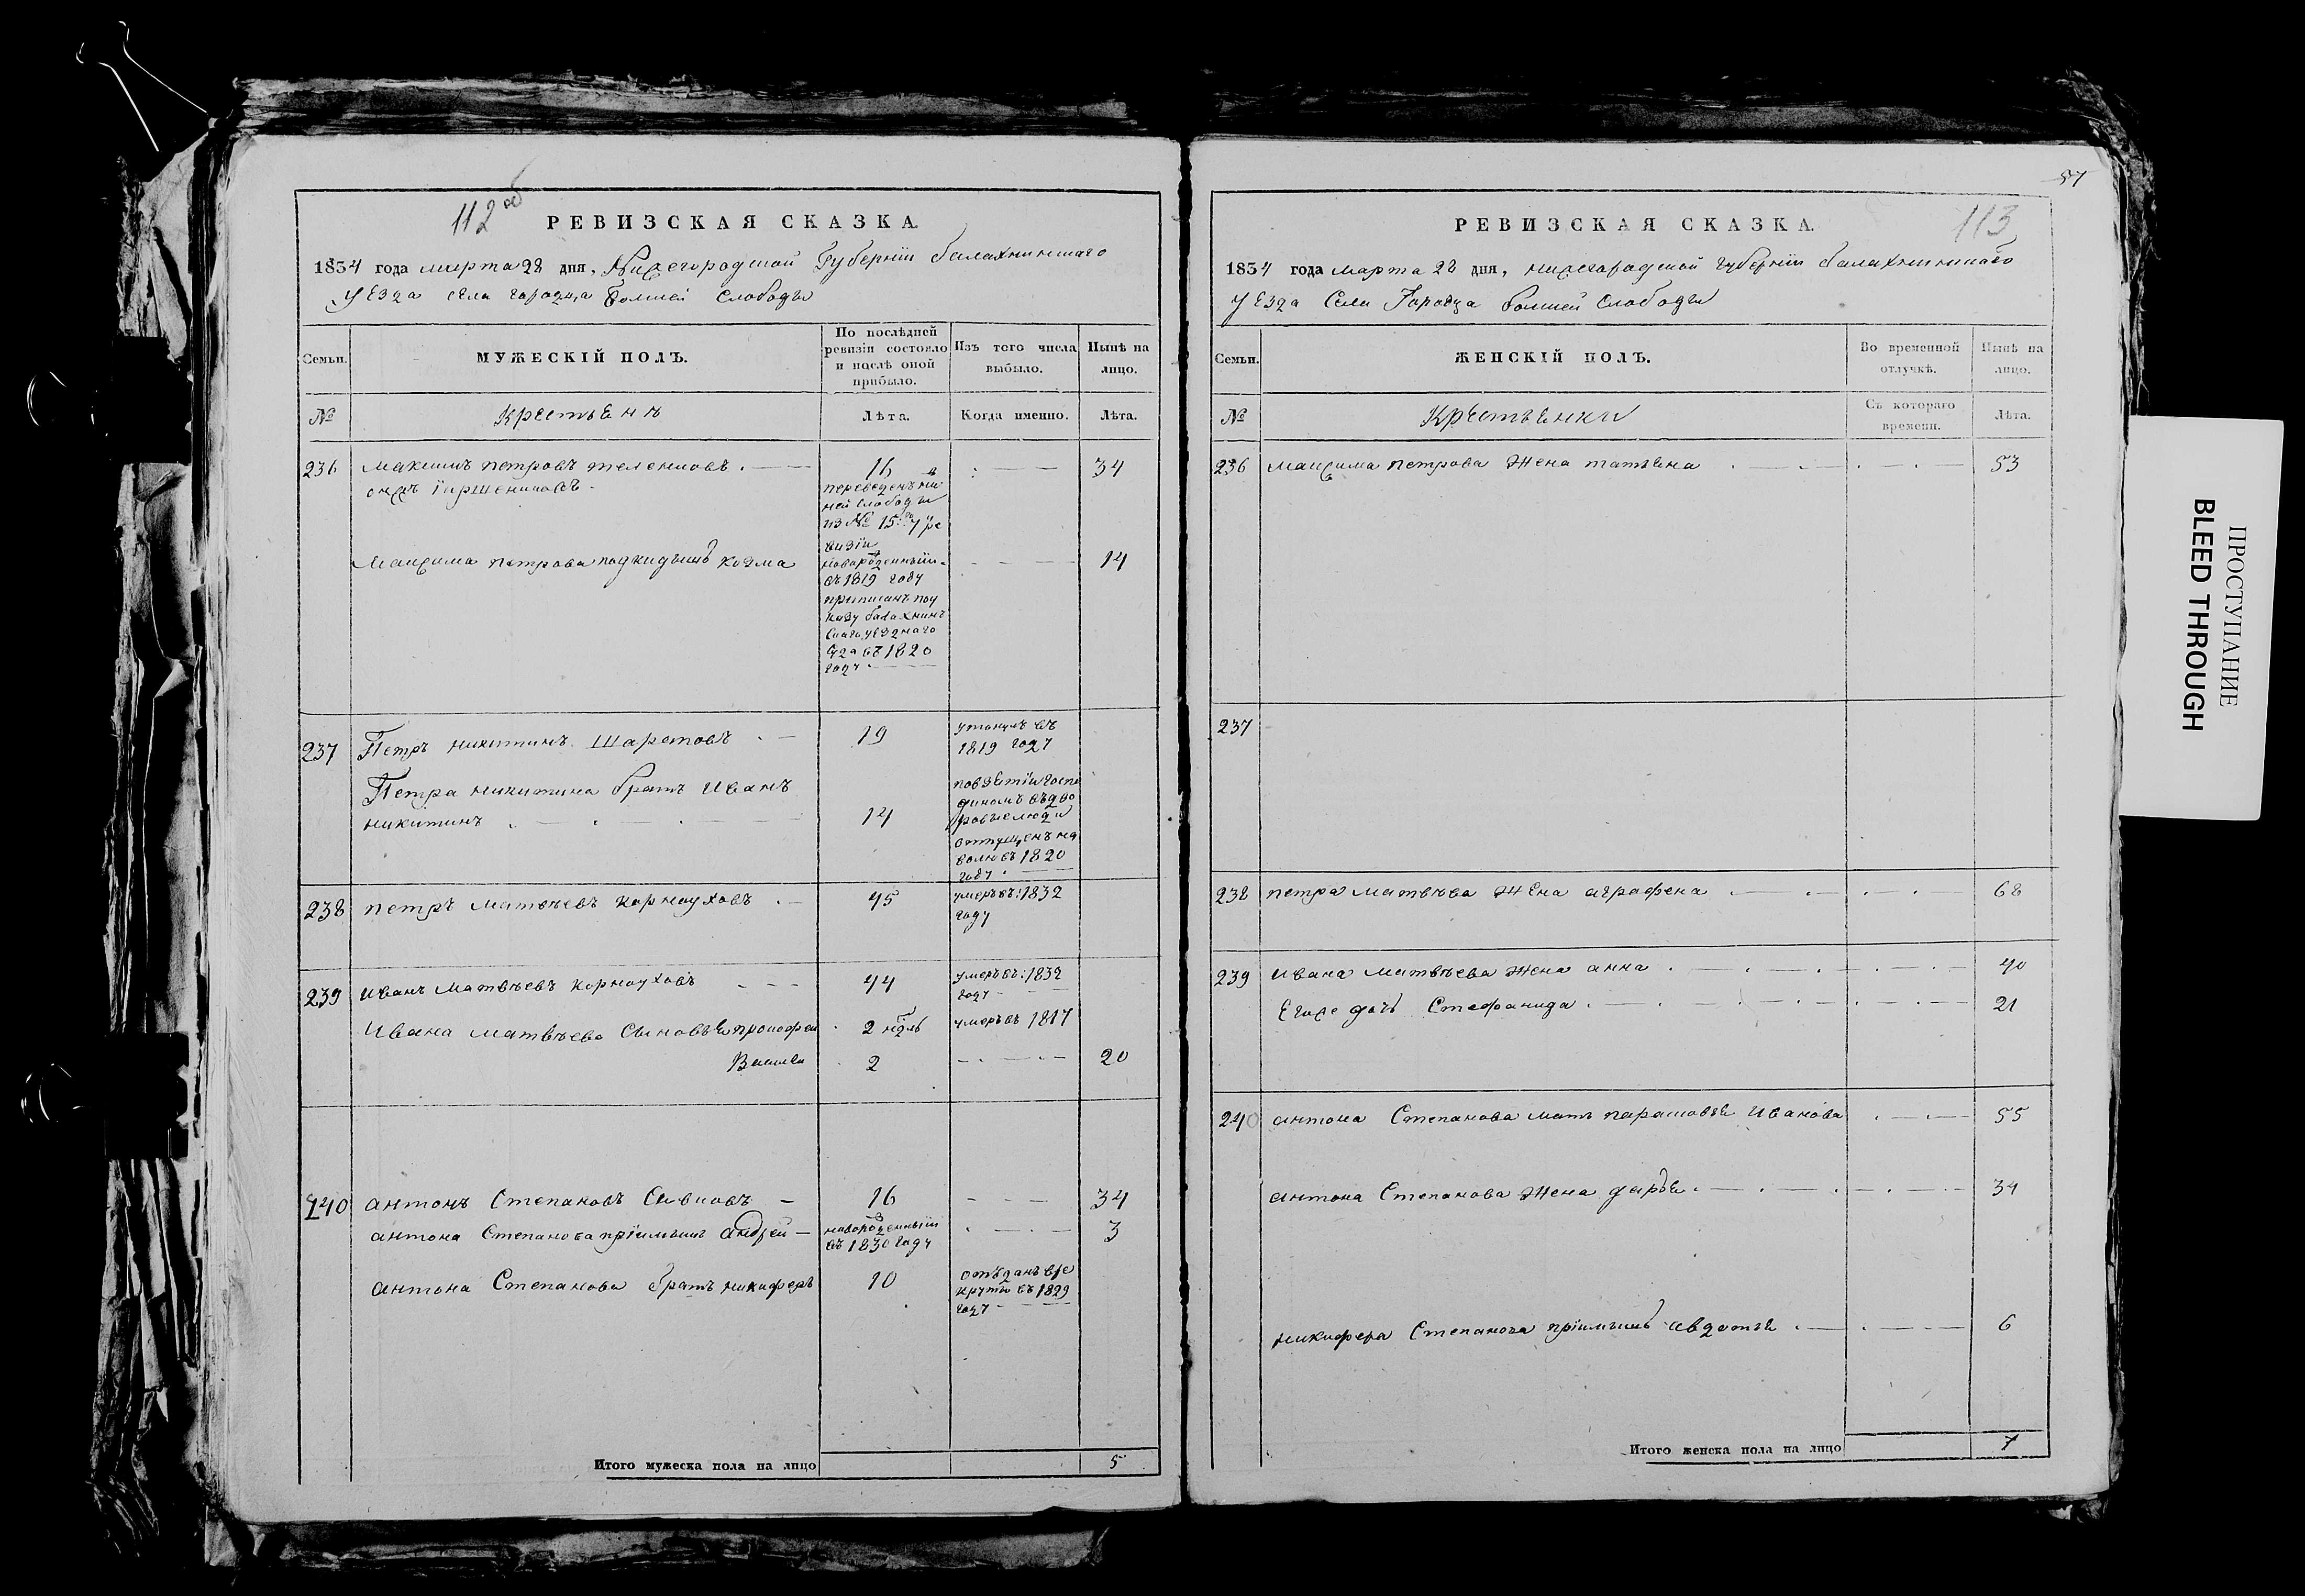 112 об
РЕВИЗСКАЯ СКАЗКА.
1834 года марта 28 дня, Нижегородской Губернïи балахнинскаго
уЕзда села городца Болшей Слободы
Семьи.
МУЖЕСКІЙ ПОЛЪ.
По послѣдней ревизіи состояло и послѣ оной прибыло.
Изъ того числа выбыло.
Нынѣ на лицо.
№
Крестьянъ
Лѣта.
Когда именно.
Лѣта.
236 максимъ петровъ 16 34
онжъ
переведенъ
ней слободы
из № 15 7 ре
визïи
Максима петрова подкидышъ козма 14
новарожденныïи
въ 1819 году
приписанъ поу
казу балахнин
скаго уЕзднаго
въ 1820
году
237 Петръ никитинъ 19
утонулъ въ
1819 году
Петра никитина братъ Иванъ
никитинъ 14
повзятïи госпо
диномъ въ дво
ровые люди
отпущенъ на
волю въ 1820
году
238 петръ матвѣевъ карноуховъ 45
умеръ въ 1832
году
239 иванъ матвѣевъ корноуховъ 44
умеръ въ: 1832
году
Ивана матвѣева Сыновья прокофеи 2 нѣдль умеръ въ 1817
Василеи 2 20
240 антонъ Степановъ Сивковъ 16 34
антона Степанова прïимышъ андреи 3
новорожденныïи
въ 1830 году
антона Степанова братъ никифоръ 10
отъданъ в ре
круты въ 1829
году
Итого мужеска пола на лицо 5
57
113
РЕВИЗСКАЯ СКАЗКА.
1834 года марта 28 дня, нижегородской губернïи балахнинскаго
уЕзда Села Городца болшей слободы
Семьи.
ЖЕНСКІЙ ПОЛЪ.
Во временной отлучкѣ.
Нынѣ на лицо.
№
Крестьянки
Съ котораго времени.
Лѣта.
236 максима петрова жена татьяна 53
237
238 петра матвѣева жена аграфена 68
239 ивана матвѣева жена анна 40
Егоже дочь Стефанида 21
240 антона Степанова мать парасковья Иванова 55
антона Степанова жена дарья 34
никифера Степанова прïимышъ авдотья 6
Итого женска пола на лицо 7
ПРОСТУПАНИЕ
BLEED THROUGH